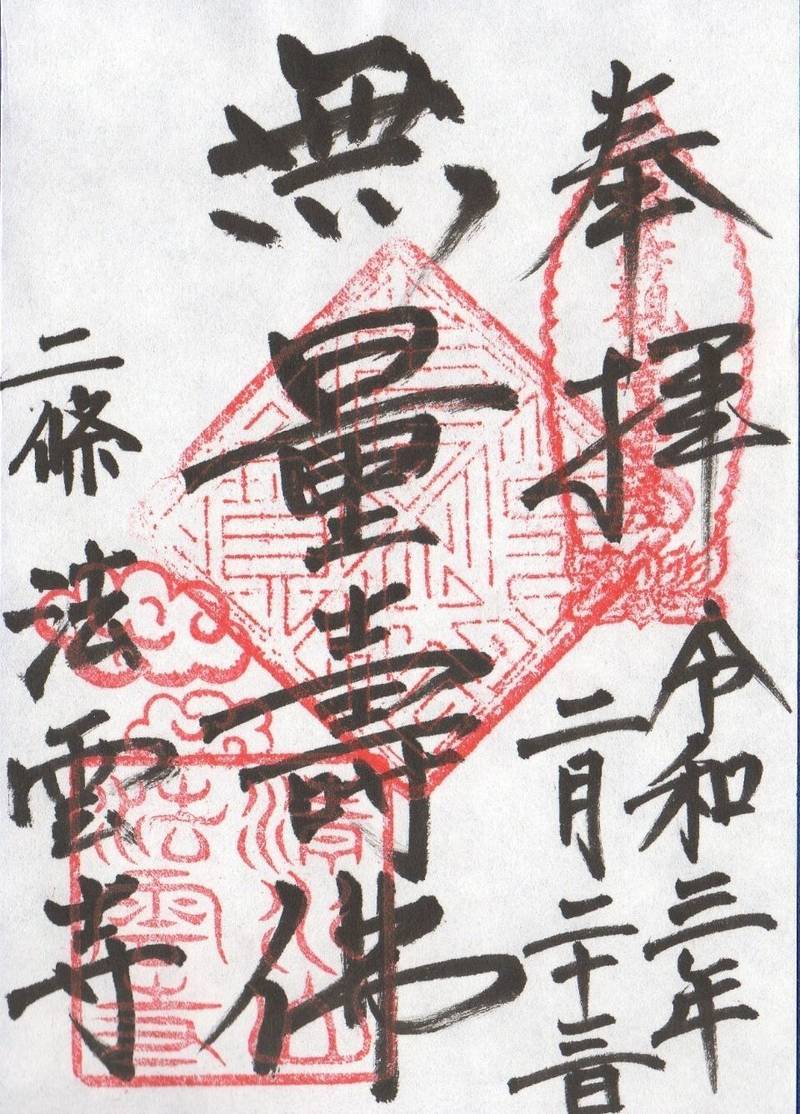 奉拝
令和三年
二月二十三日
無量壽佛
二條
法雲寺
清水山
法雲寺